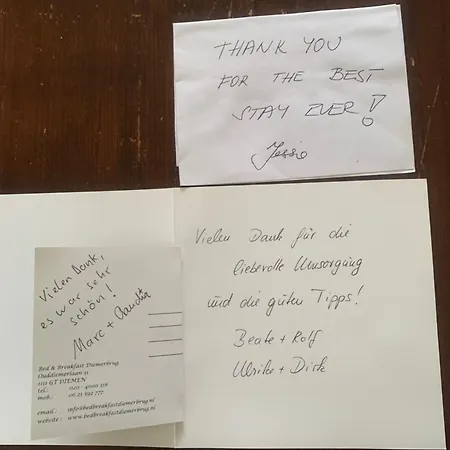 THANK YOU
FOR THE BEST
STAY EVER!
Jessie
Vielen Dank,
es war sehr
schön!
Marc + Claudia
Bed & Breakfast Diemerbrug
Ouddiemerlaan 31
1111 GT DIEMEN
tel.: 020 - 4000 118
mob.: 06 21 592 777
email: info@bedbreakfastdiemerbrug.nl
website: www.bedbreakfastdiemerbrug.nl
Vielen Dank für die
liebevolle Umsorgung
und die guten Tipps!
Beate + Rolf
Ulrike + Dirk